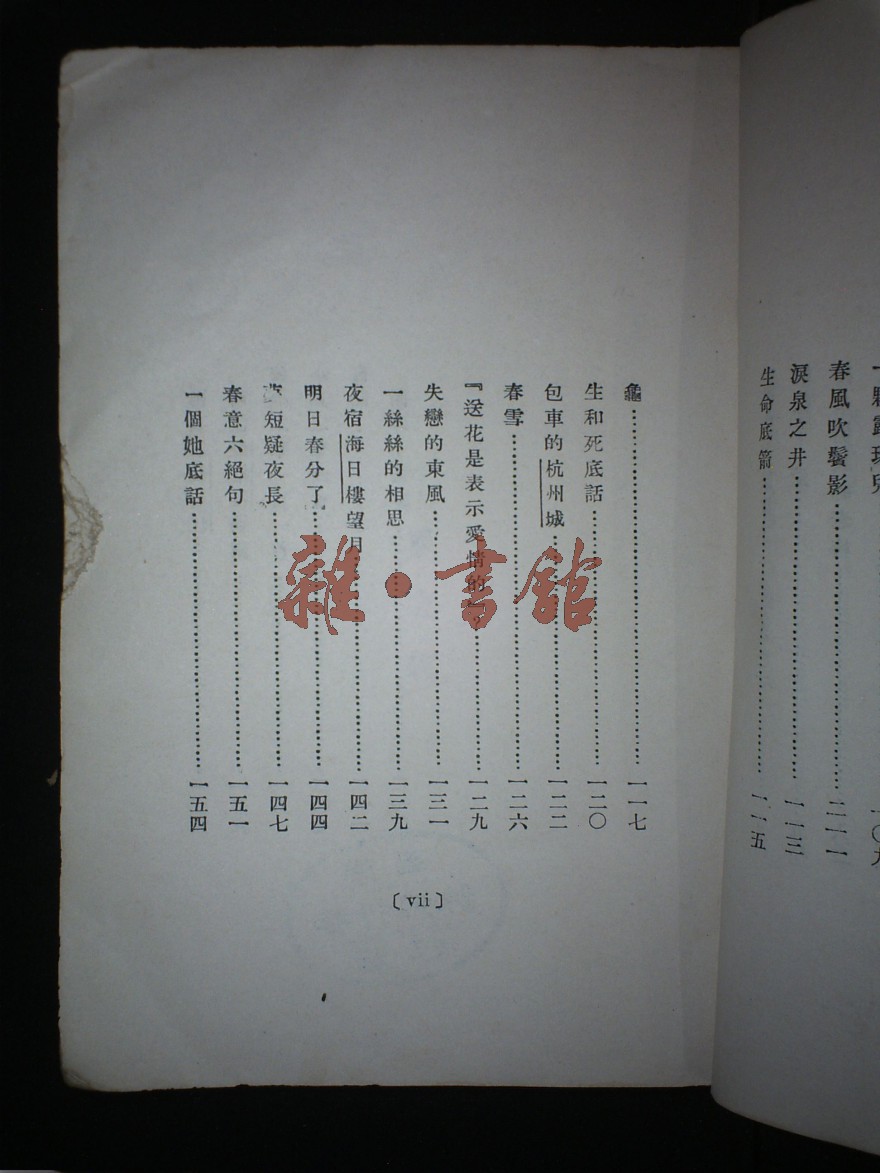 春風吹鬢影…………一一一
淚泉之井…………一一三
生命底箭…………一一五
龜…………一一七
生和死底話…………一二〇
包車的杭州城…………一二二
春雪…………一二六
『送花是表示愛情的』?…………一二九
失戀的東風…………一三一
一絲絲的相思…………一三九
夜宿海日樓望月…………一四二
明日春分了…………一四四
短疑夜長…………一四七
春意六絕句…………一五一
一個她底話…………一五四
〔vii〕
雜·書館